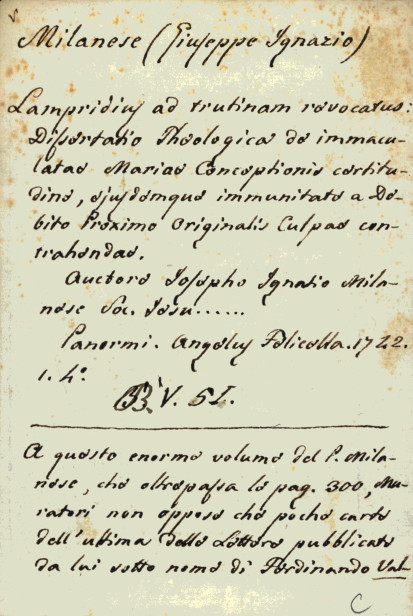 Milanese (Giuseppe Ignazio)
Lampridius ad trutinam revocatus:
Dissertatio Theologica de immacu-
latae Mariae Conceptionis certitu-
dine, ejusdemque immunitate a De-
bito Proximo Originalis Culpae con-
trahendae.
Auctore Josepho Ignatio Mila-
nese Soc. Jesu......
Panormi. Angelus Felicella. 1742.
1. 4°.
V. 51.
A questo enorme volume del P. Mila-
nese, che oltrepassa le pag. 300, Mu-
ratori non oppose che poche carte
dell'ultima delle Lettere pubblicate
da lui sotto nome di Ferdinando Val-
C